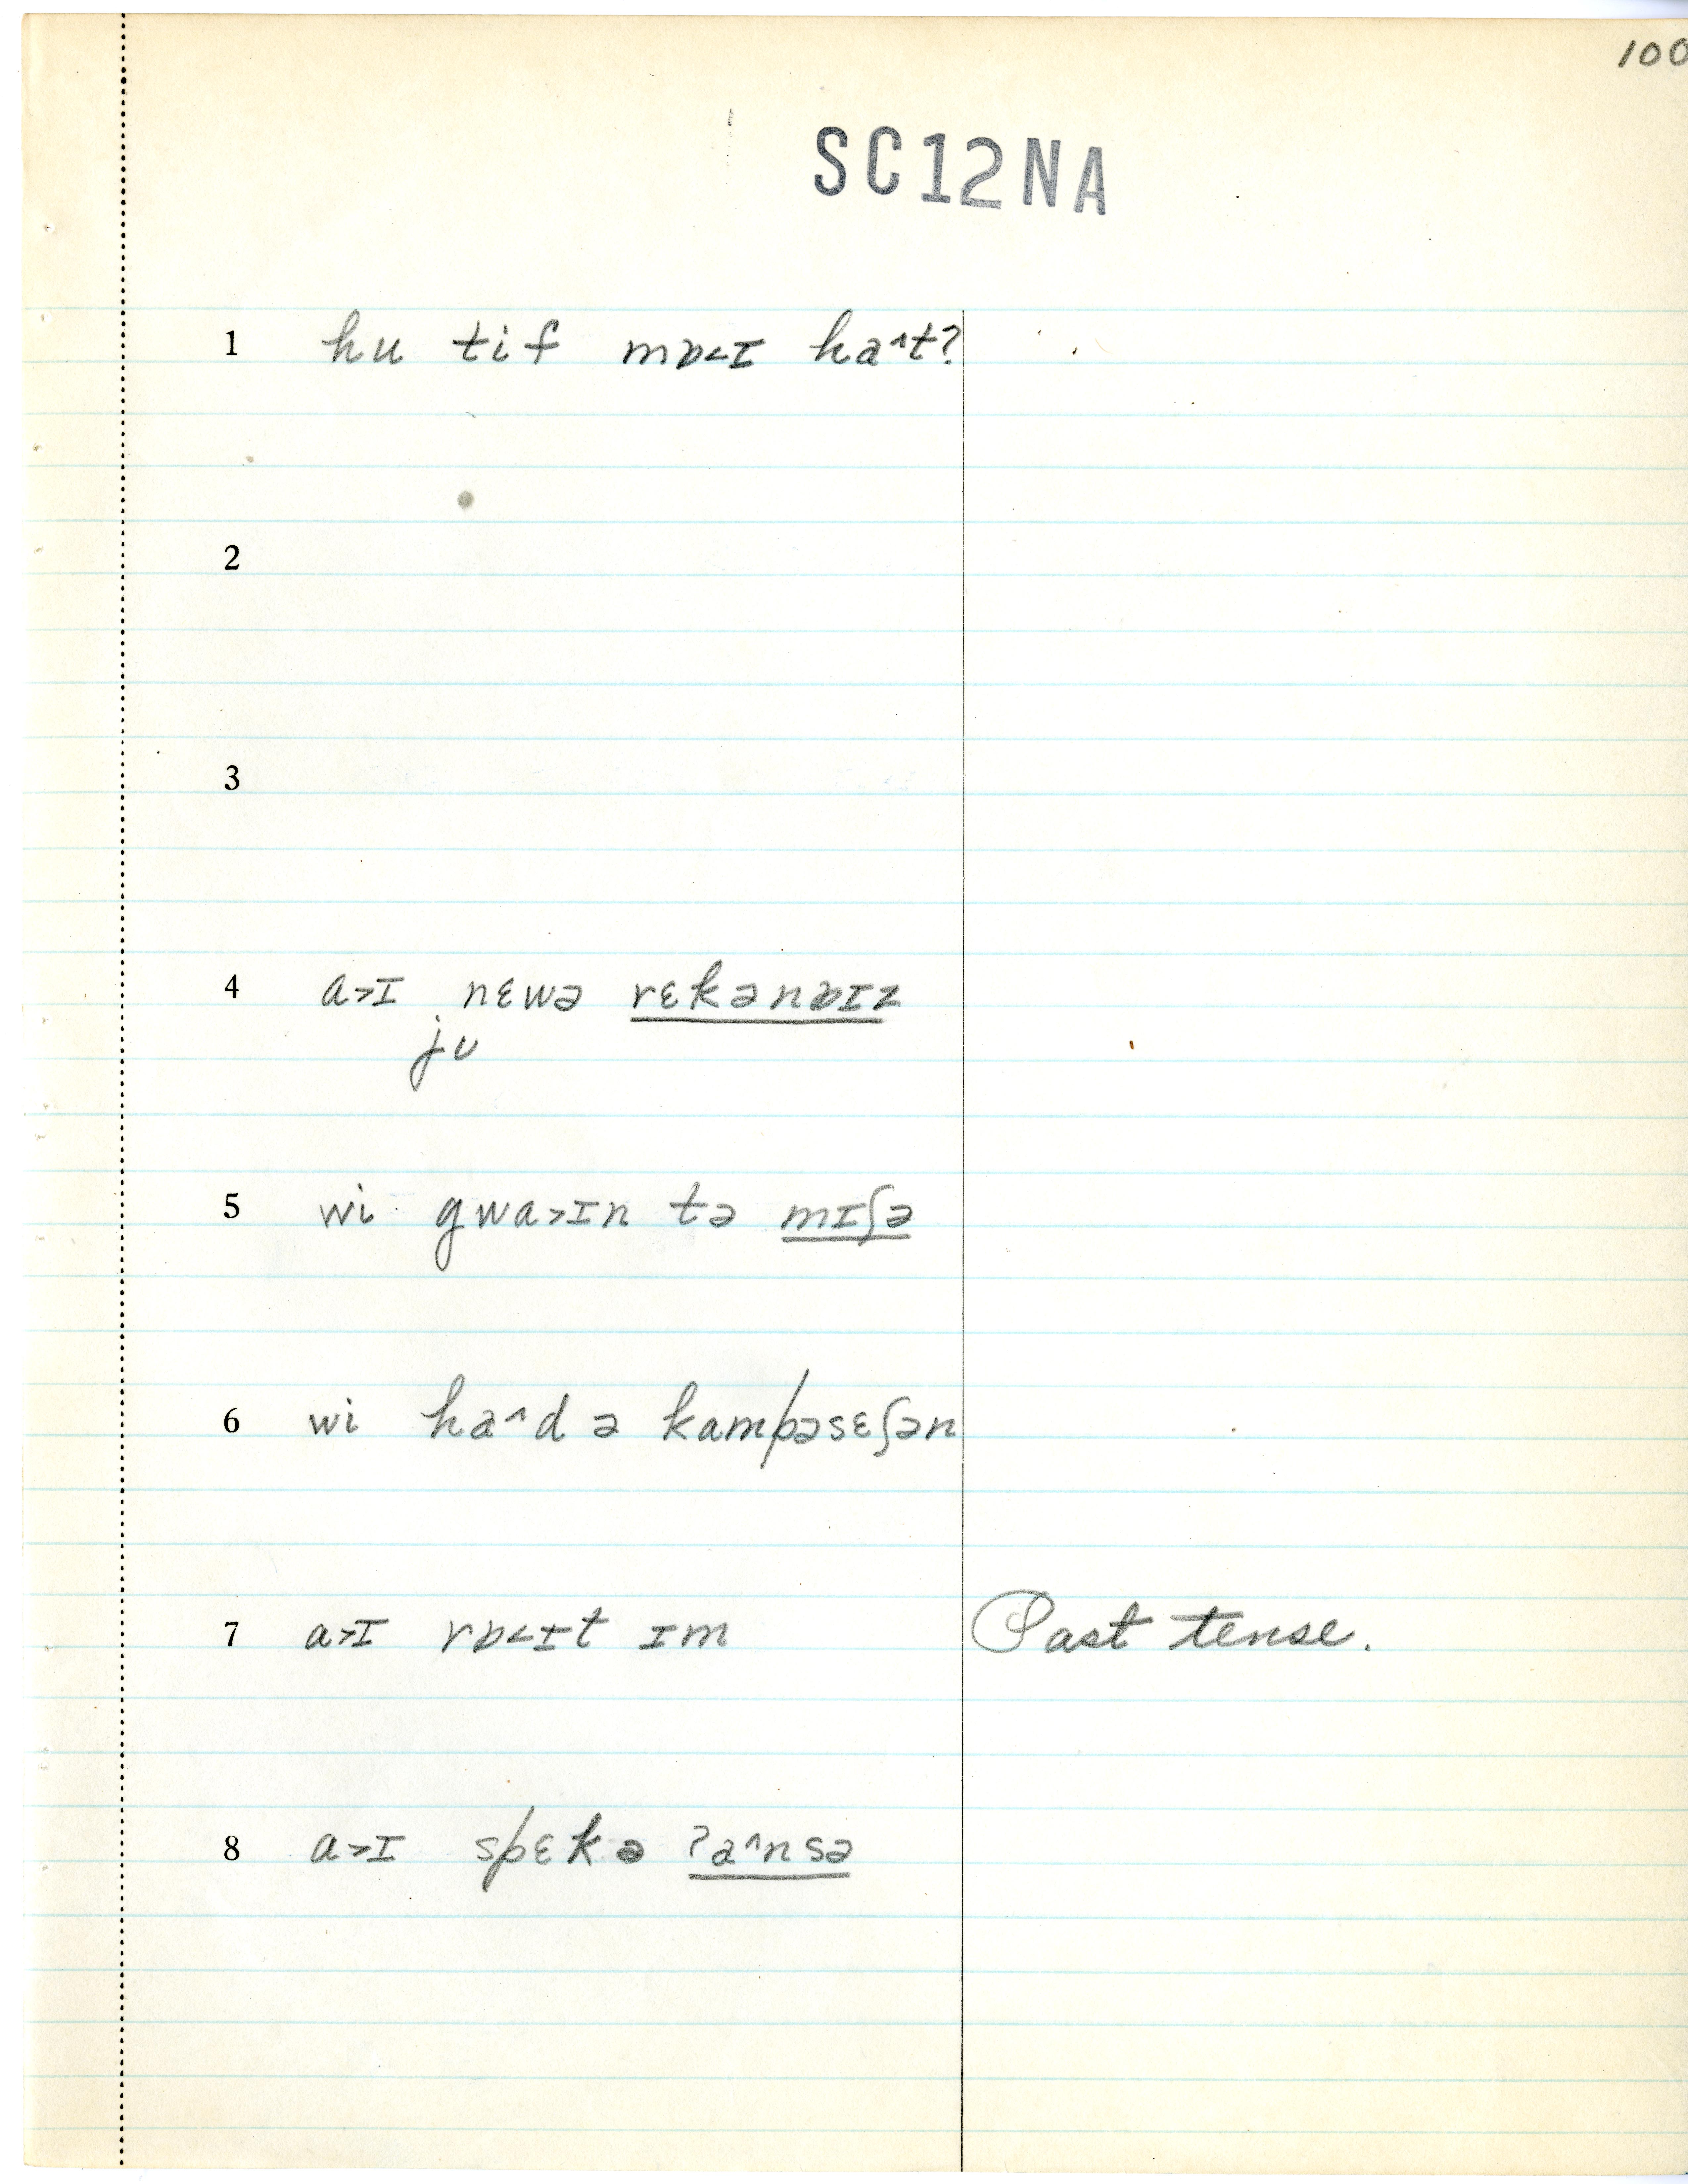 100
SC12NA
1 hu tif mɒ<ɪ ha^t?
2
3
4 a>ɪ nɛwə rɛkənɒɪz
ju
5 wi gwa>ɪn tə mɪʃə
6 wi ha^d ə kampəsɛʃən
7 a>ɪ rɒ<ɪt ɪm Past tense.
8 a>ɪ spɛkə ʔa^nsə